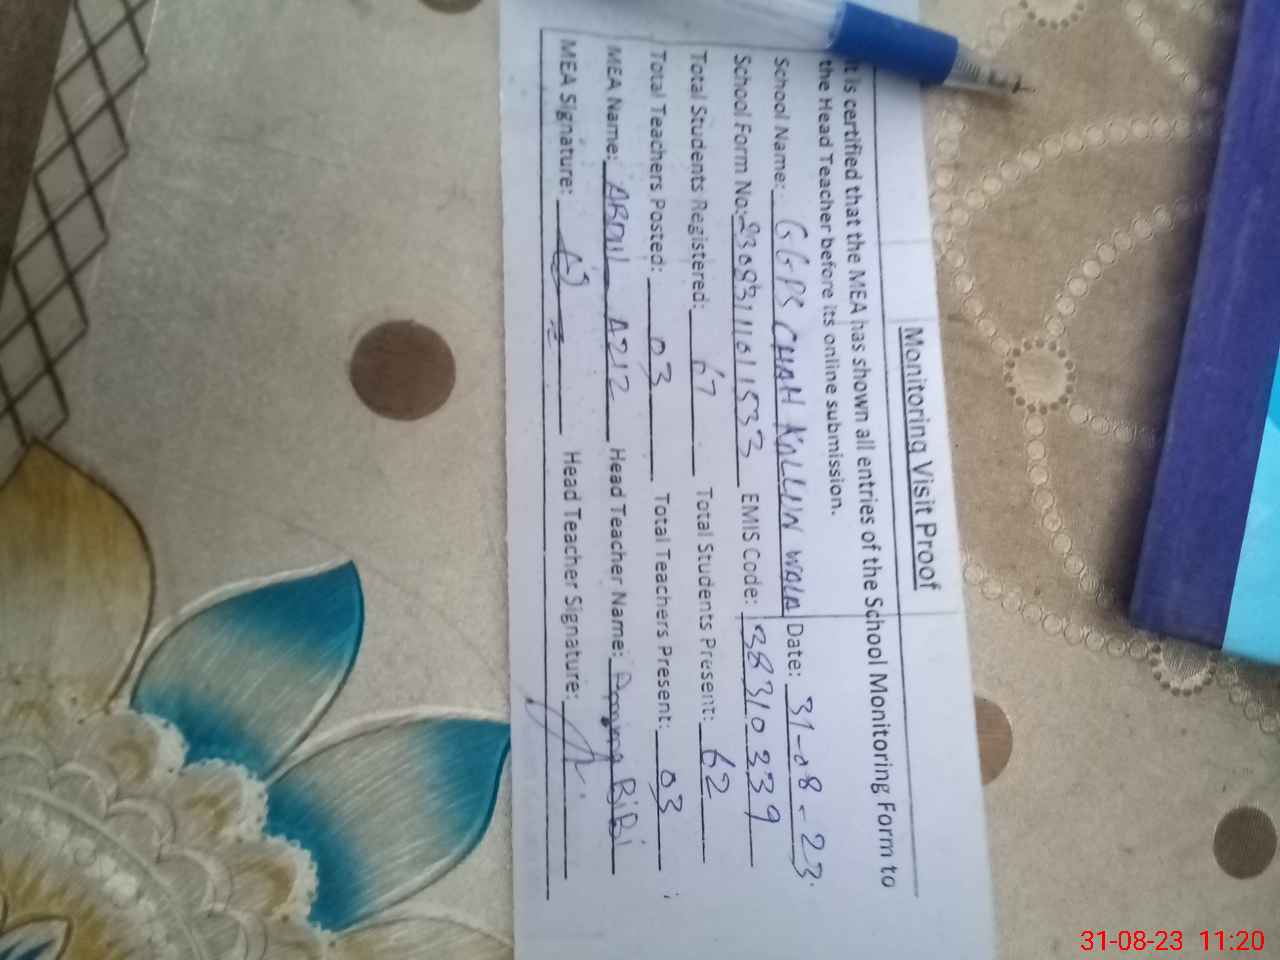 Monitoring Visit Proof
It is certified that the MEA has shown all entries of the School Monitoring Form to
the Head Teacher before its online submission.
School Name: GGPS CHAH KALLUN WALA Date: 31-08-23.
School Form No: 2308311011533 EMIS Code: 38310339
Total Students Registered: 67 Total Students Present: 62
Total Teachers Posted: 03 Total Teachers Present: 03
MEA Name: ABDUL AZIZ Head Teacher Name: Amina BiBi
MEA Signature: Head Teacher Signature:
31-08-23 11:20